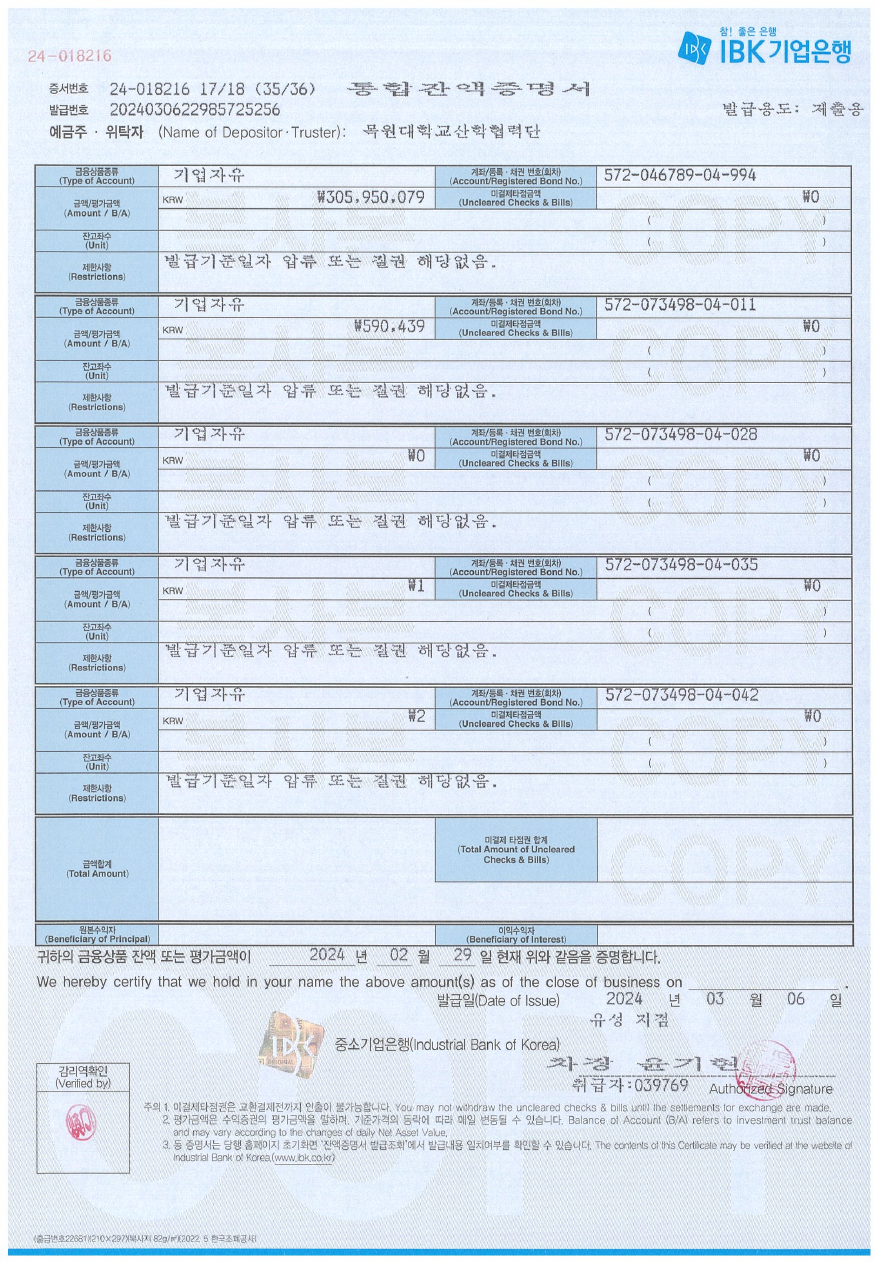 24-018216
참! 좋은 은행
IBK기업은행
증서번호 24-018216 17/18 (35/36) 통합잔액증명서
발급번호 2024030622985725256 발급용도: 제출용
예금주 · 위탁자 (Name of Depositor · Truster): 목원대학교산학협력단
금융상품종류 (Type of Account) 기업자유 계좌/등록 · 채권 번호(회차) (Account/Registered Bond No.) 572-046789-04-994
금액/평가금액 (Amount / B/A) KRW ₩305,950,079 미결제타점금액 (Uncleared Checks & Bills) ₩0
( )
잔고좌수 (Unit) ( )
제한사항 (Restrictions) 발급기준일자 압류 또는 질권 해당없음.
금융상품종류 (Type of Account) 기업자유 계좌/등록 · 채권 번호(회차) (Account/Registered Bond No.) 572-073498-04-011
금액/평가금액 (Amount / B/A) KRW ₩590,439 미결제타점금액 (Uncleared Checks & Bills) ₩0
( )
잔고좌수 (Unit) ( )
제한사항 (Restrictions) 발급기준일자 압류 또는 질권 해당없음.
금융상품종류 (Type of Account) 기업자유 계좌/등록 · 채권 번호(회차) (Account/Registered Bond No.) 572-073498-04-028
금액/평가금액 (Amount / B/A) KRW ₩0 미결제타점금액 (Uncleared Checks & Bills) ₩0
( )
잔고좌수 (Unit) ( )
제한사항 (Restrictions) 발급기준일자 압류 또는 질권 해당없음.
금융상품종류 (Type of Account) 기업자유 계좌/등록 · 채권 번호(회차) (Account/Registered Bond No.) 572-073498-04-035
금액/평가금액 (Amount / B/A) KRW ₩1 미결제타점금액 (Uncleared Checks & Bills) ₩0
( )
잔고좌수 (Unit) ( )
제한사항 (Restrictions) 발급기준일자 압류 또는 질권 해당없음.
금융상품종류 (Type of Account) 기업자유 계좌/등록 · 채권 번호(회차) (Account/Registered Bond No.) 572-073498-04-042
금액/평가금액 (Amount / B/A) KRW ₩2 미결제타점금액 (Uncleared Checks & Bills) ₩0
( )
잔고좌수 (Unit) ( )
제한사항 (Restrictions) 발급기준일자 압류 또는 질권 해당없음.
금액합계 (Total Amount) 미결제 타점권 합계 (Total Amount of Uncleared Checks & Bills)
COPY
원본수익자 (Beneficiary of Principal) 이익수익자 (Beneficiary of Interest)
귀하의 금융상품 잔액 또는 평가금액이 2024 년 02 월 29 일 현재 위와 같음을 증명합니다.
We hereby certify that we hold in your name the above amount(s) as of the close of business on .
발급일(Date of Issue) 2024 년 03 월 06 일
유성 지점
중소기업은행(Industrial Bank of Korea)
차장 윤기현
취급자:039769 Authorized Signature
감리역확인
(Verified by)
주의 1. 미결제타점권은 교환결제전까지 인출이 불가능합니다. You may not withdraw the uncleared checks & bills until the settlements for exchange are made.
2. 평가금액은 수익증권의 평가금액을 말하며, 기준가격의 등락에 따라 매일 변동될 수 있습니다. Balance of Account (B/A) refers to investment trust balance
and may vary according to the changes of daily Net Asset Value.
3. 동 증명서는 당행 홈페이지 초기화면 '잔액증명서 발급조회'에서 발급내용 일치여부를 확인할 수 있습니다. The contents of this Certificate may be verified at the website of
Industrial Bank of Korea.(www.ibk.co.kr)
(출급번호22681)(210×297)(복사지 82g/㎡)(2022. 5 한국조폐공사)